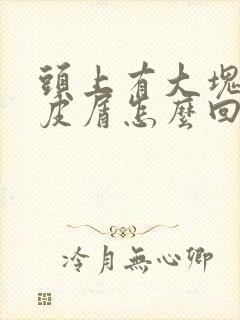 頭上有大塊
皮屑怎麼回
冷月無心卿